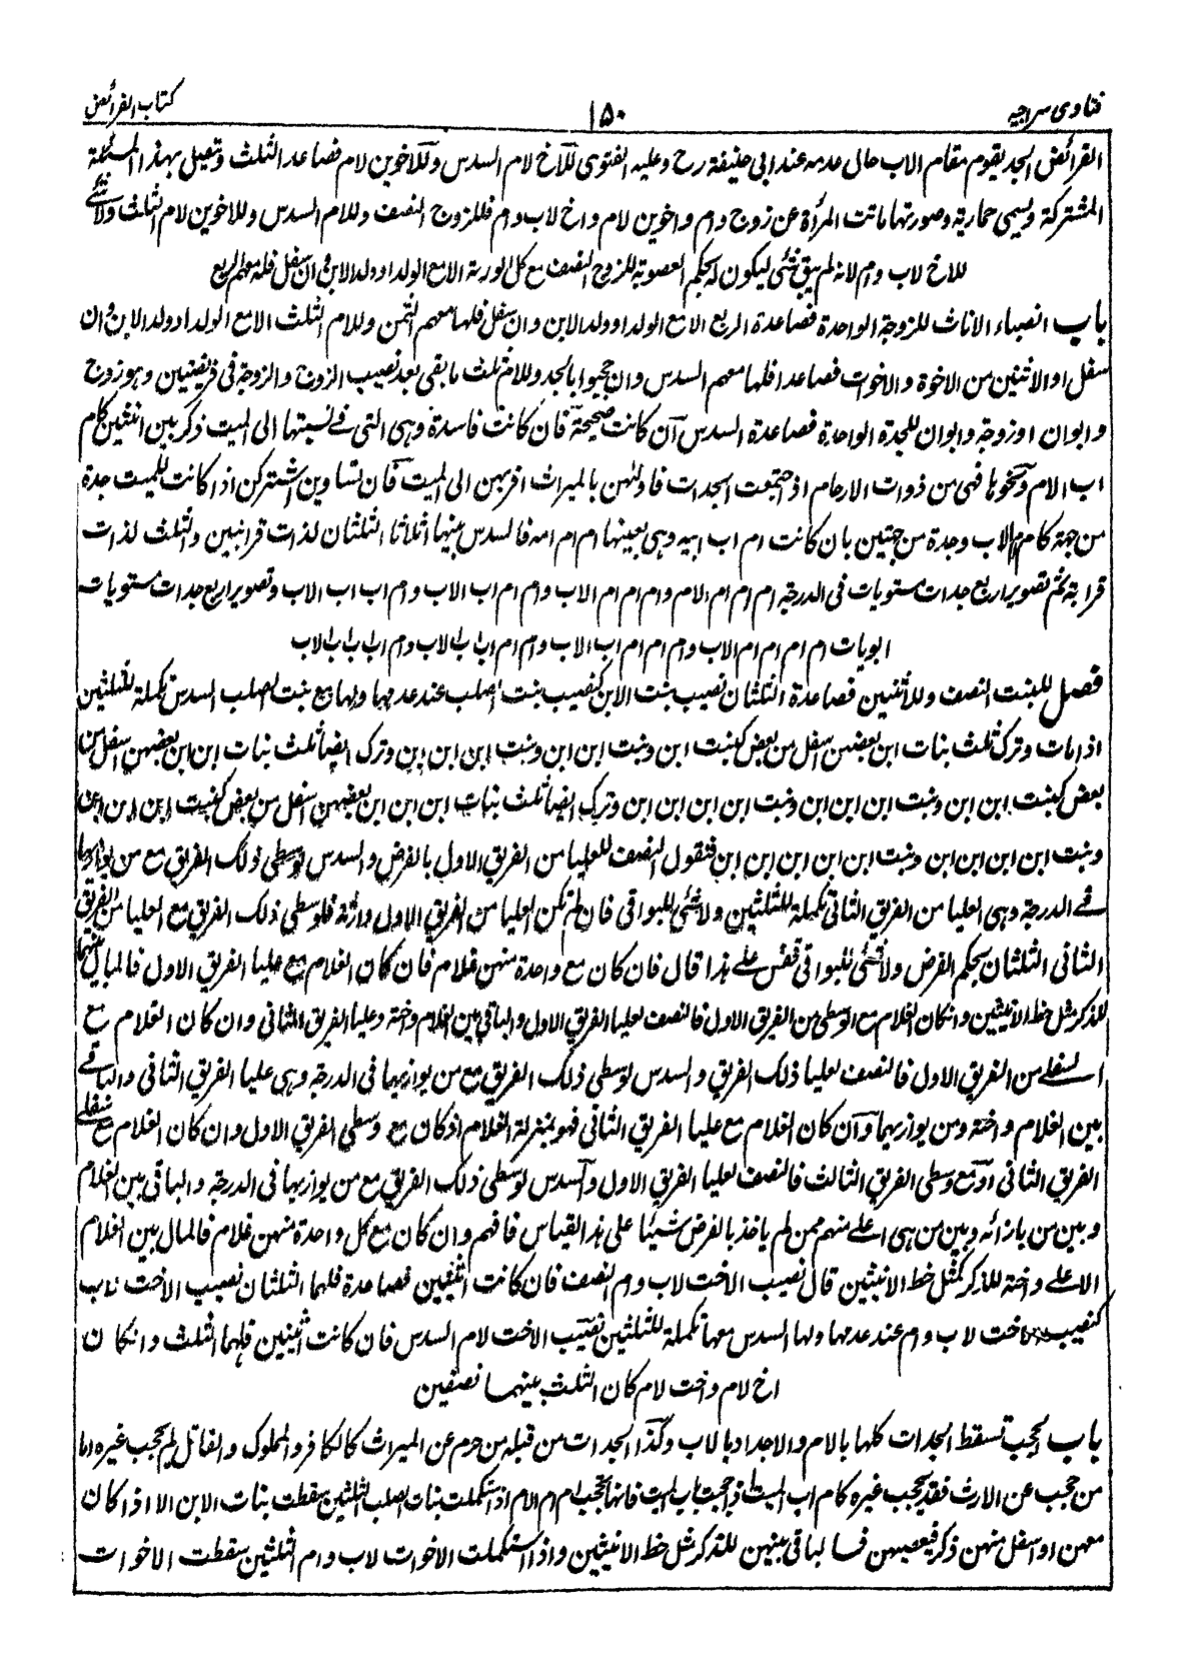 فتاوى سراجيه
١٥٠
كتاب الفرائض
الفرائض الجد يقوم مقام الاب حالى عدمه عند ابى حنيفة رح وعليه الفتوى للآخ لام السدس وللآخوين لام فصاعدا الثلث وتعيل بهذا المسئلة
المشتركة ويسمى حمارية وصورتها ماتت المرأة عن زوج وام واخوين لام واخ لاب وام فللزوج النصف وللام السدس وللاخوين لام الثلث ولا شئ
للاخ لاب وام لانه لم يبق شئ ليكون له بحكم العصوبة للزوج النصف مع كل الورثة الا مع الولد او ولد الابن وان سفل فله معهم الربع
باب انصباء الاناث للزوجة الواحدة فصاعدة الربع الا مع الولد او ولد الابن وان سفل فلها معهم الثمن وللام الثلث الا مع الولد او ولد الابن وان
سفل او الاثنين من الاخوة والاخوات فصاعدا فلها معهم السدس وان حجبوا بالجد وللام ثلث ما بقى بعد نصيب الزوج والزوجة فى فريضتين وهو زوج
وابوان او زوجة وابوان للجدة الواحدة فصاعدة السدس آن كانت صحيحة فآن كانت فاسدة وهى التى فے نسبتها الى الميت ذكر بين انثيين كام
اب الام ونحوها فهى من ذوات الارحام اذ اجتمعت الجدات فاولٰهن بالميراث اقربهن الى الميت فآن تساوين اشتركن اذا كانت للميت جدة
من جهة كام ام الاب وجدة من جهتين بان كانت ام اب ابيه وهى بعينها ام ام امه فالسدس بينها اثلاثا الثلثان لذات قرابتين والثلث لذات
قرابة ثم تصوير اربع جدات مستويات فى الدرجة ام ام ام ام الام وام ام ام ام الاب وام ام ام اب الاب وام اب اب الاب وتصوير اربع جدات مستويات
ابويات ام ام ام ام ام الاب وام ام ام ام اب الاب وام ام ام اب اب الاب وام اب اب اب الاب
فصل للبنت النصف وللاثنين فصاعدة الثلثان نصيب بنت الابن كنصيب بنت الصلب عند عدمها ولها مع بنت الصلب السدس تكملة للثلثين
اذا مات وترك ثلث بنات ابن بعضهن اسفل من بعض كبنت ابن وبنت ابن ابن وبنت ابن ابن ابن وترك ايضا ثلث بنات ابن ابن بعضهن اسفل من
بعض كبنت ابن ابن وبنت ابن ابن ابن وبنت ابن ابن ابن ابن وترك ايضا ثلث بنات ابن ابن ابن بعضهن اسفل من بعض كبنت ابن ابن ابن
وبنت ابن ابن ابن ابن وبنت ابن ابن ابن ابن ابن فنقول النصف للعليا من الفريق الاول بالفرض والسدس لوسطى ذلك الفريق مع من يوازيها
فے الدرجة وهى العليا من الفريق الثانى تكملة للثلثين ولا شئ للبواقى فان لم تكن العليا من الفريق الاول وارثة فلوسطى ذلك الفريق مع العليا من الفريق
الثانى الثلثان بحكم الفرض ولا شئ للبواقى فقس على هذا قال فان كان مع واحدة منهن غلام فان كان الغلام مع عليا الفريق الاول فالمال بينهما
للذكر مثل حظ الانثيين وان كان الغلام مع الوسطى من الفريق الاول فالنصف لعليا الفريق الاول والباقى بين الغلام واخته وعليا الفريق الثانى وان كان الغلام مع
السفلے من الفريق الاول فالنصف لعليا ذلك الفريق والسدس لوسطى ذلك الفريق مع من يوازيها فى الدرجة وهى عليا الفريق الثانى والباقے
بين الغلام واخته ومن يوازيهما وآن كان الغلام مع عليا الفريق الثانى فهو بمنزلة الغلام اذ كان مع وسطى الفريق الاول وان كان الغلام مع سفلے
الفريق الثانى او مع وسطى الفريق الثالث فالنصف لعليا الفريق الاول والسدس لوسطى ذلك الفريق مع من يوازيها فى الدرجة والباقى بين الغلام
وبين من بازائه وبين من هى اعلے منهم ممن لم ياخذ بالفرض شيئا على هذا القياس فافهم وان كان مع كل واحدة منهن غلام فالمال بين الغلام
الاعلے واخته للذكر كمثل حظ الانثيين قال نصيب الاخت لاب وام النصف فان كانت اثنتين فصاعدة فلهما الثلثان نصيب الاخت لاب
كنصيب الاخت لاب وام عند عدمها ولها السدس معها تكملة للثلثين نصيب الاخت لام السدس فان كانت اثنتين فلهما الثلث وانكان
اخ لام واخت لام كان الثلث بينهما نصفين
باب الحجب تسقط الجدات كلها بالام والاجداد بالاب وكذا الجدات من قبله من حرم عن الميراث كالكافر والمملوك والقاتل لم يحجب غيره اما
من حجب عن الارث فقد يحجب غيره كام اب الميت اذا حجبت باب الميت فانها تحجب ام ام الام اذا استكملت بنات الصلب الثلثين سقطت بنات الابن الا اذا كان
معهن او اسفل منهن ذكر فيعصبهن فالباقى بينهن للذكر مثل حظ الانثيين واذا استكملت الاخوات لاب وام الثلثين سقطت الاخوات